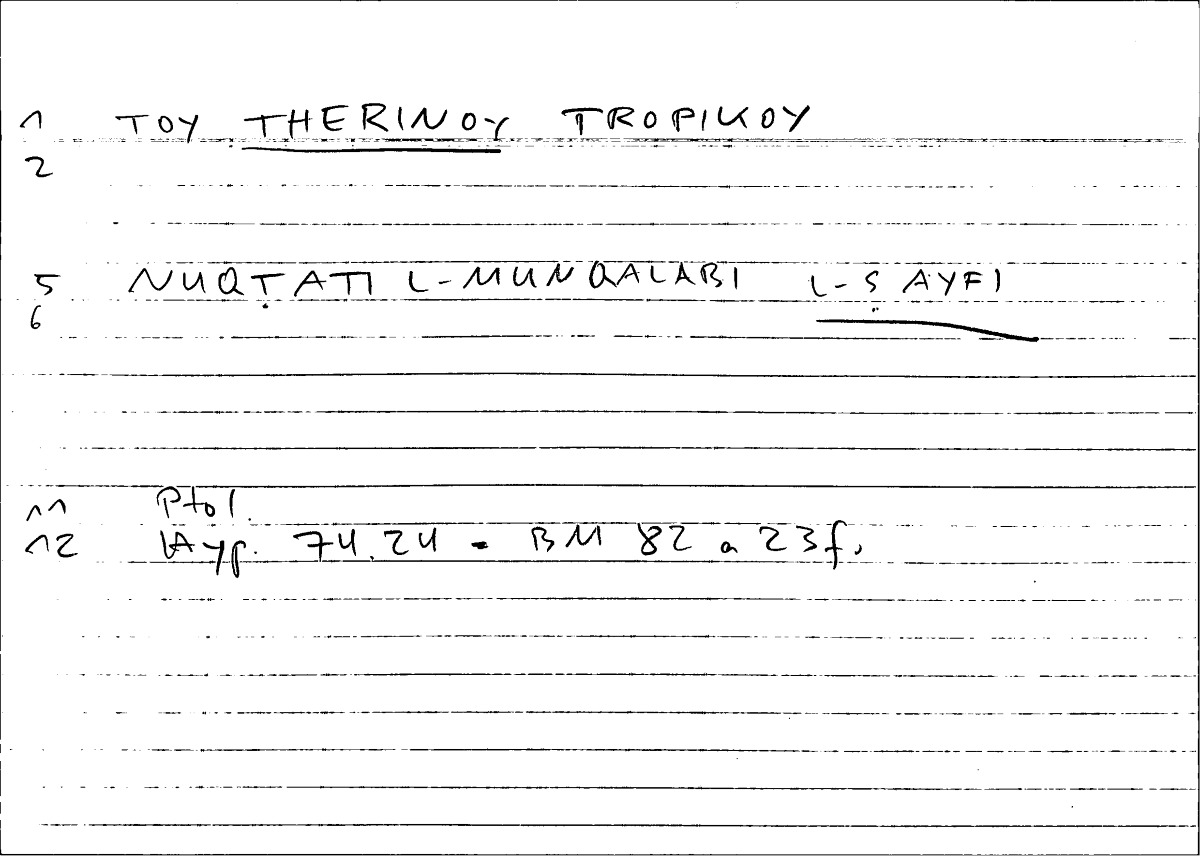 1 TOY THERINOY TROPIKOY
2
5 NUQṬATI L-MUNQALABI L-ṢAYFI
6
11 Ptol.
12 Hyp. 74.24 = BM 82 a 23f.